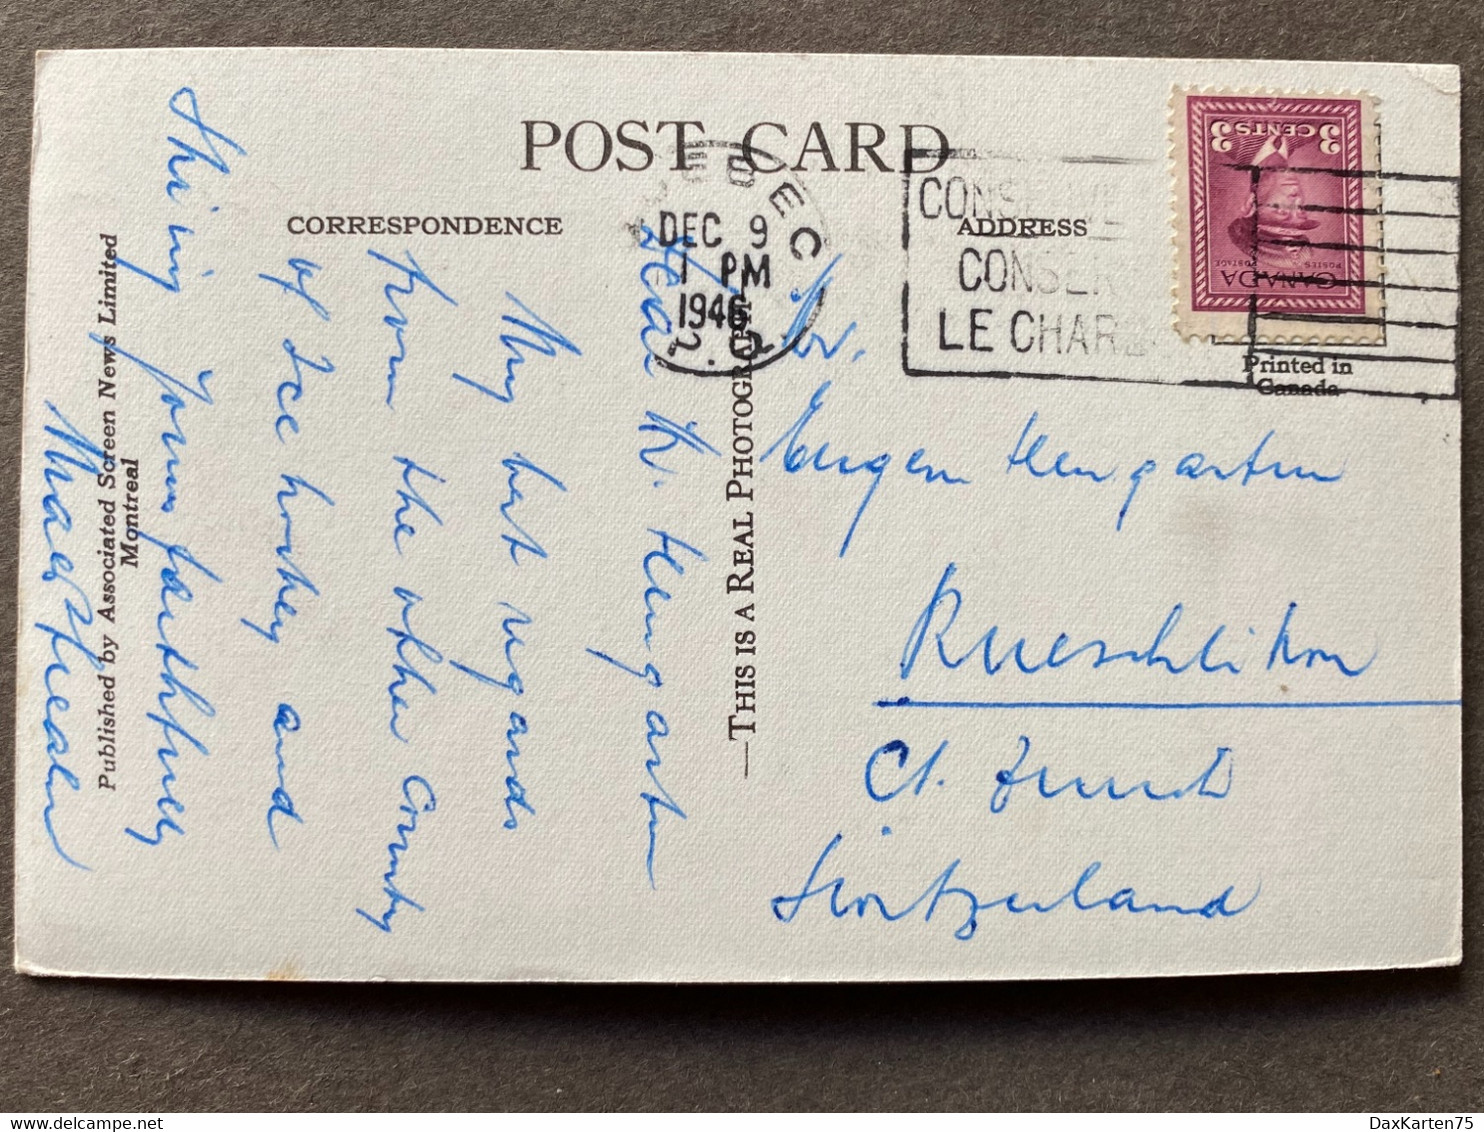 POST CARD
CORRESPONDENCE
ADDRESS
QUEBEC
DEC 9
1 PM
1946
P. Q.
CONSERVE
CONSER
LE CHAR
3 CENTS 3
POSTES POSTAGE
CANADA
Printed in
Canada
—THIS IS A REAL PHOTOGRAPH
Published by Associated Screen News Limited
Montreal
Dear Mr. Hengarten
My best regards
from the other Country
of Ice hockey and
Skiing
Yours faithfully
Mr.
Eugen Hengarten
Rueschlikon
Ct. Zurich
Switzerland
DaxKarten75